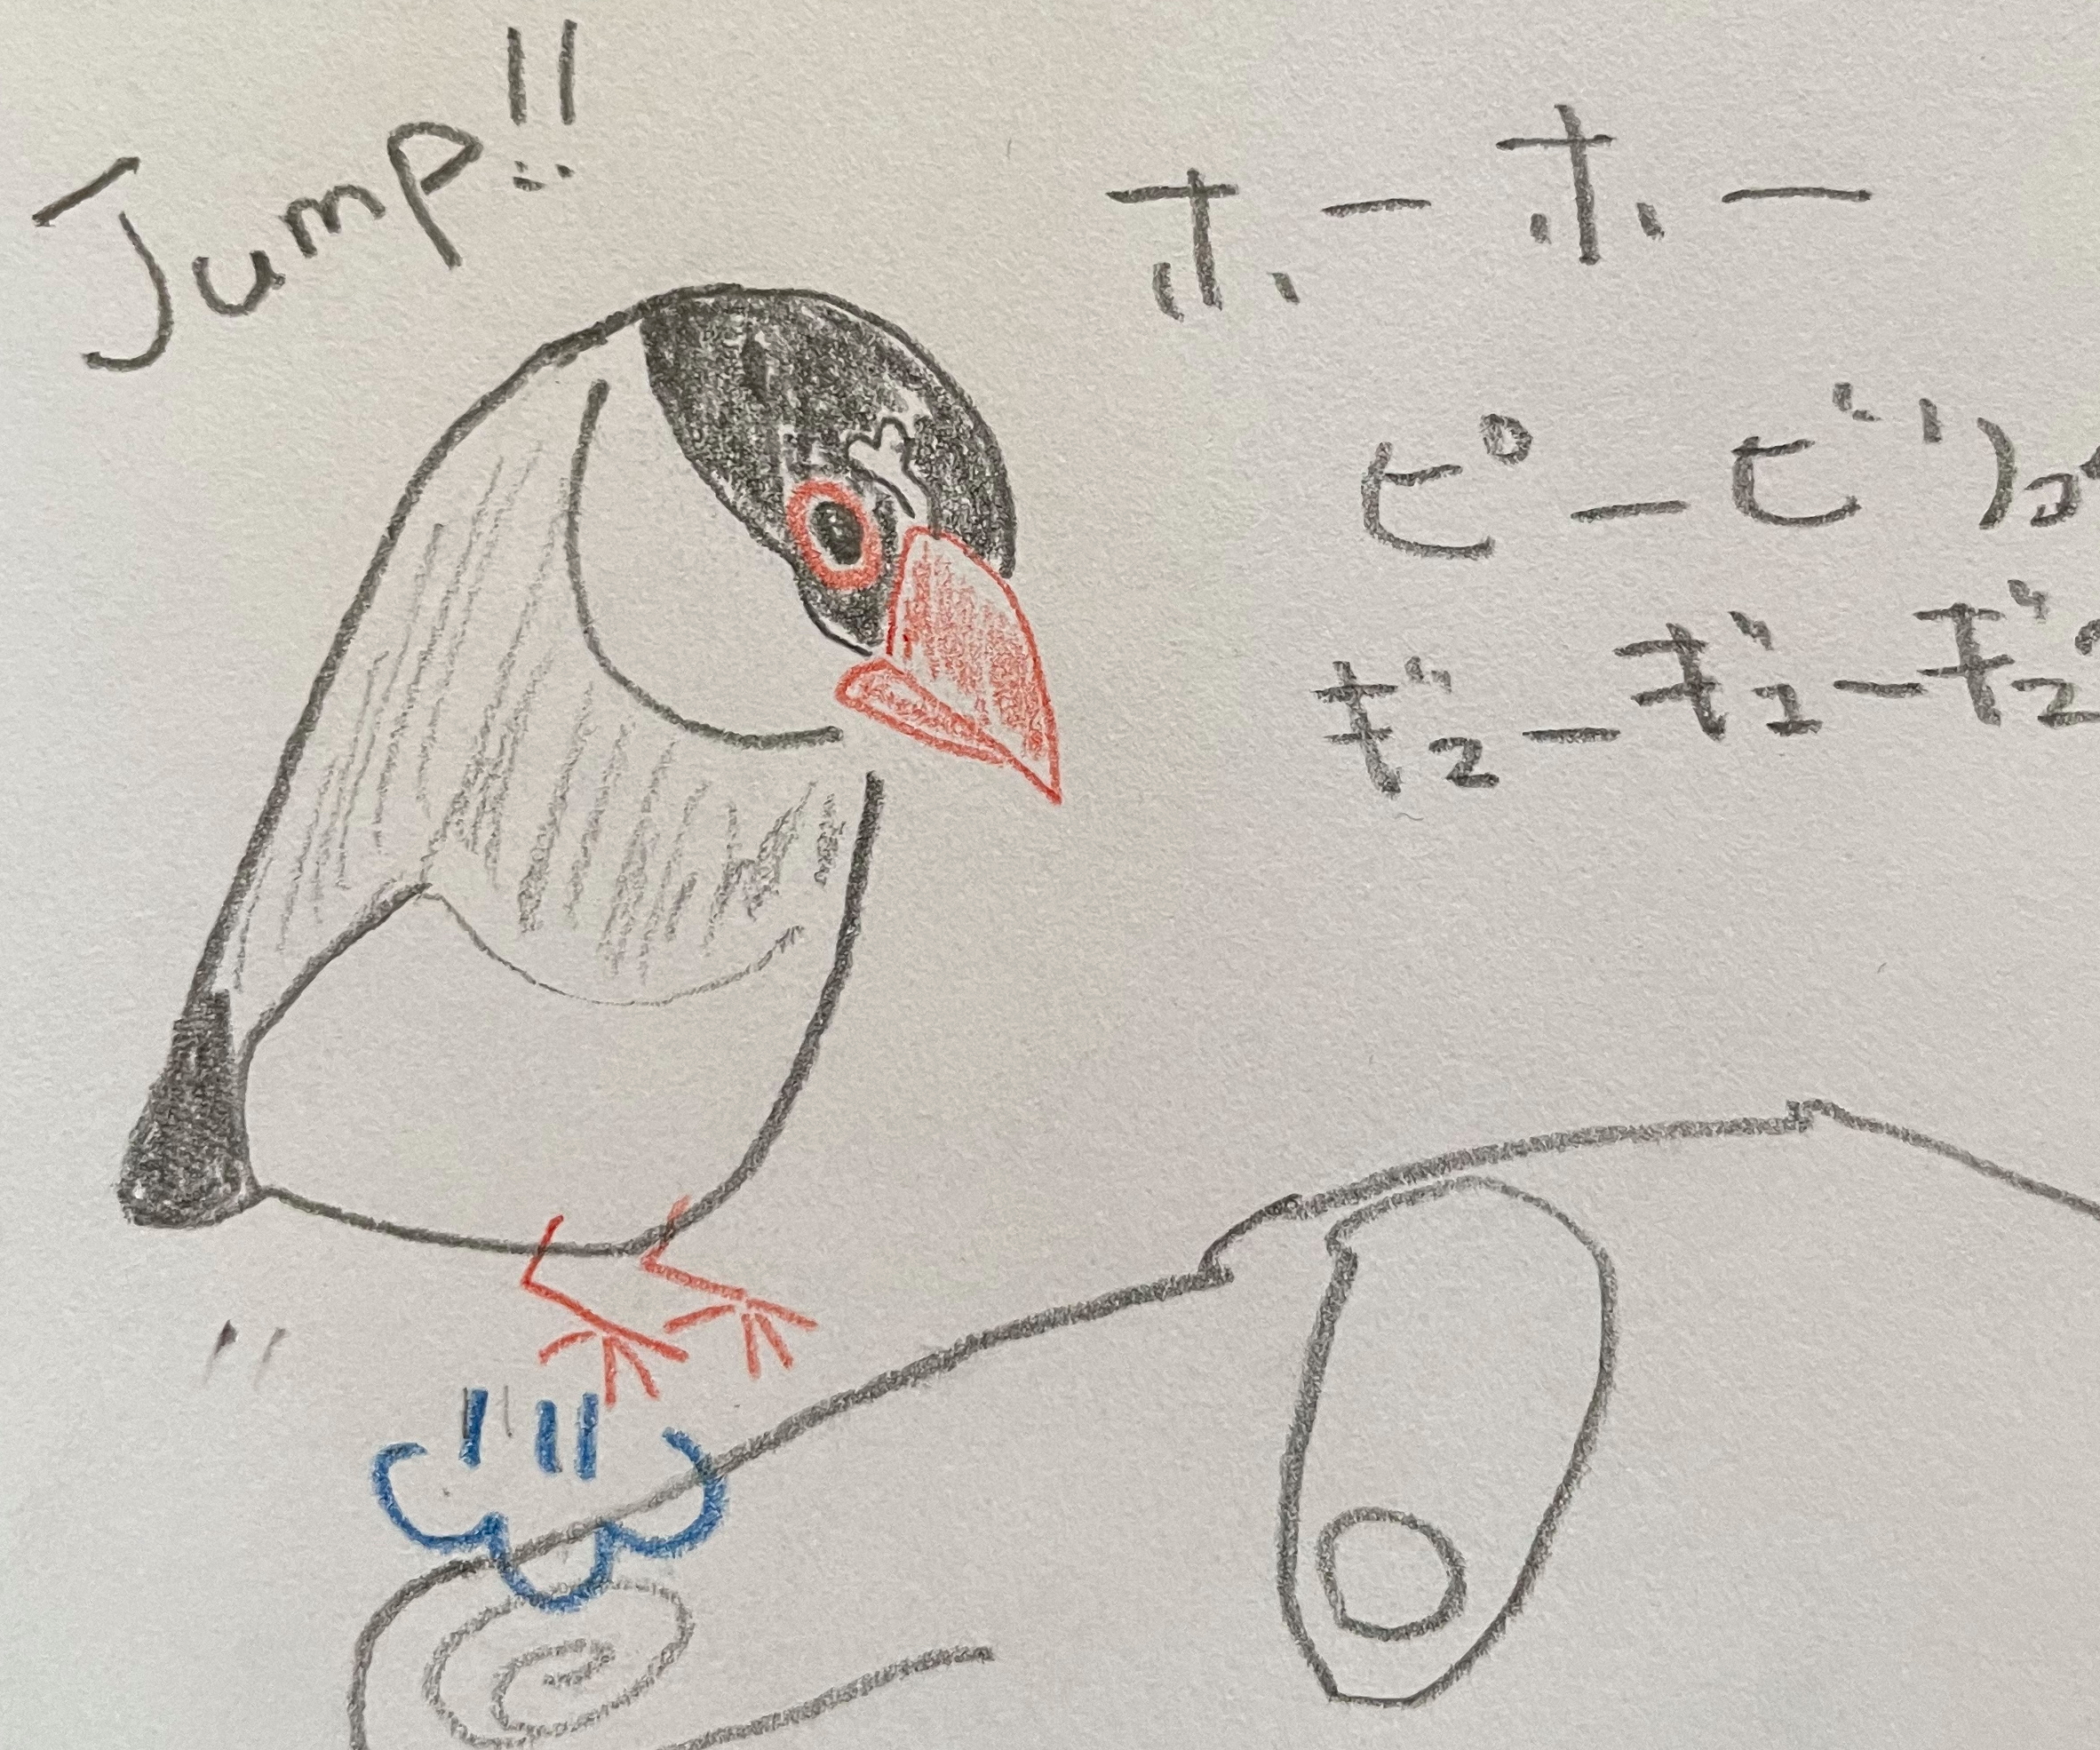 Jump!!
ホーホー
ピービリ
ギューギューギュ